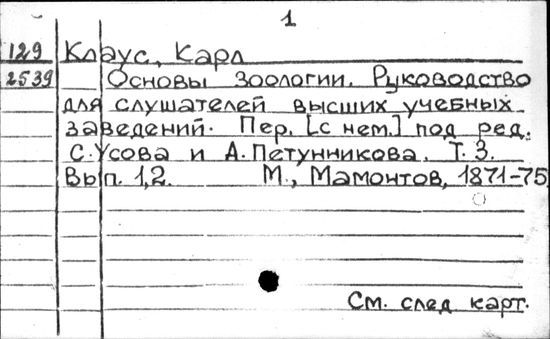 1
129 Клаус, Карл
2539 Основы зоологии. Руководство
для слушателей высших учебных
заведений. Пер. [с нем.] под ред.
С. Усова и А. Петунникова. Т. 3.
Вып. 1,2. М., Мамонтов, 1871-75
См. след карт.